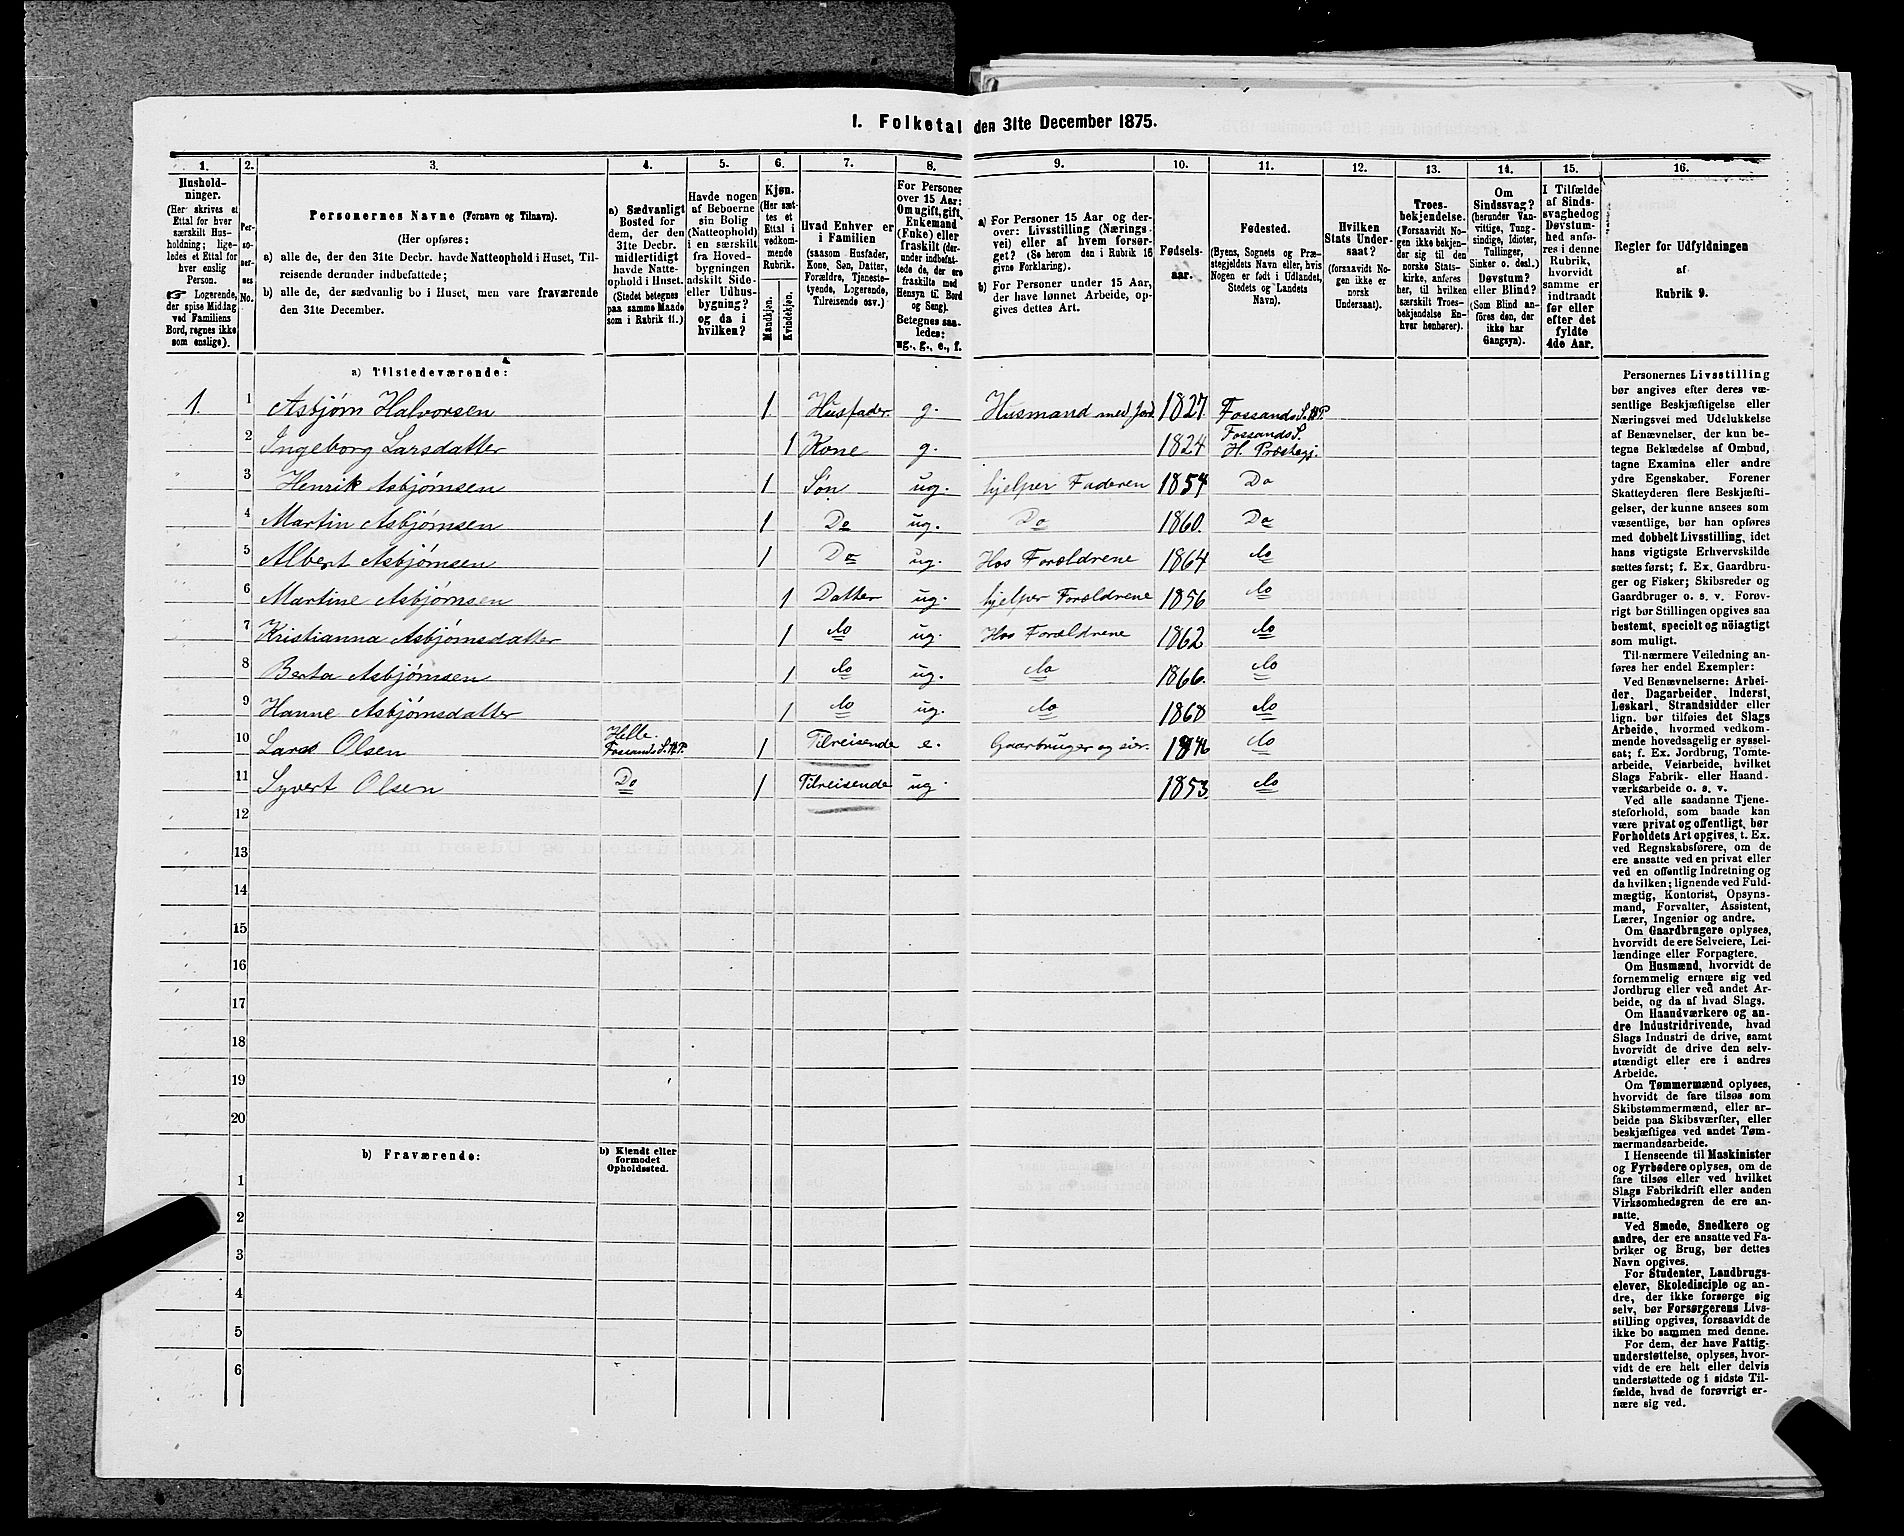 1. Folketal den 31te December 1875.
1. 2. 3. 4. 5. 6. 7. 8. 9. 10. 11. 12. 13. 14. 15. 16.
Hushold-
ninger.
(Her skrives et
Ettal for hver
særskilt Hus-
holdning; lige-
ledes et Ettal for
hver enslig
Person.
☞ Logerende,
der spise Middag
ved Familiens
Bord, regnes ikke
som enslige).
Per-
so-
ner-
nes
No.
Personernes Navne (Fornavn og Tilnavn).
(Her opføres:
a) alle de, der den 31te Decbr. havde Natteophold i Huset, Til-
reisende derunder indbefattede;
b) alle de, der sædvanlig bo i Huset, men vare fraværende
den 31te December.
a) Sædvanligt
Bosted for
dem, der den
31te Decbr.
midlertidigt
havde Natte-
ophold i Huset.
(Stedet betegnes
paa samme Maade
som i Rubrik 11.)
Havde nogen
af Beboerne
sin Bolig
(Natteophold)
i en særskilt
fra Hoved-
bygningen
adskilt Side-
eller Udhus-
bygning?
og da i
hvilken?
Kjøn.
(Her sæt-
tes et
Ettal i
vedkom-
mende
Rubrik.
Mandkjøn.
Kvindekjøn.
Hvad Enhver er
i Familien
(saasom Husfader,
Kone, Søn, Datter,
Forældre, Tjeneste-
tyende, Logerende,
Tilreisende osv.)
For Personer
over 15 Aar:
Om ugift, gift,
Enkemand
(Enke) eller
fraskilt (der-
under indbefat-
tede de, der ere
fraskilte med
Hensyn til Bord
og Seng).
Betegnes saa-
ledes:
ug., g., e., f.
a) For Personer 15 Aar og der-
over: Livsstilling (Nærings-
vei) eller af hvem forsør-
get? (Se herom den i Rubrik 16
givne Forklaring).
b) For Personer under 15 Aar,
der have lønnet Arbeide, op-
gives dettes Art.
Fødsels-
aar.
Fødested.
(Byens, Sognets og Præ-
stegjeldets Navn eller, hvis
Nogen er født i Udlandet,
Stedets og Landets
Navn).
Hvilken
Stats Under-
saat?
(forsaavidt No-
gen ikke er
norsk
Undersaat).
Troes-
bekjendelse.
(Forsaavidt No-
gen ikke bekjen-
der sig til den
norske Stats-
kirke, anføres
her, til hvilken
særskilt Troes-
bekjendelse En-
hver henhører).
Om
Sindssvag?
(herunder Van-
vittige, Tung-
sindige, Idioter,
Tullinger,
Sinker o. desl.)
Døvstum?
eller Blind?
(Som Blind an-
føres den, der
ikke har
Gangsyn).
I Tilfælde
af Sinds-
svaghed og
Døvstum-
hed anfø-
res i denne
Rubrik,
hvorvidt
samme er
indtraadt
før eller
efter det
fyldte
4de Aar.
Regler for Udfyldningen
af
Rubrik 9.
a) Tilstedeværende:
1. 1 Asbjørn Halvorsen 1. Husfader. g. Husmand med Jord. 1827. Fossands S. H P.
2 Ingeborg Larsdatter 1 Kone g. 1824 Fossands S. H. Præstegj.
3 Henrik Asbjørnsen 1 Søn ug. hjelper Faderen 1854 Do
4 Martin Asbjørnsen 1 Do ug. Do 1860. Do
5 Albert Asbjørnsen 1 Do ug. Hos Forældrene 1864 do
6 Martine Asbjørnsen 1 Datter ug. hjelper Forældrene 1856 do
7 Kristianna Asbjørnsdatter 1 do ug. Hos Forældrene 1862 do
8 Berta Asbjørnsen 1 do ug. do 1866. do
9 Hanne Asbjørnsdatter 1 do ug. do 1868 do
10 Lars Olsen Helle. Fossands S. H P. 1 Tilreisende e. Gaarbruger og 1846 do
11 Syvert Olsen Do 1 Tilreisende ug. 1853. do
12
13
14
15
16
17
18
19
20
b) Fraværende:
b) Kjendt eller
formodet
Opholdssted.
1
2
3
4
5
6
Personernes Livsstilling
bør angives efter deres væ-
sentlige Beskjæftigelse eller
Næringsvei med Udelukkelse
af Benævnelser, der kun be-
tegne Beklædelse af Ombud,
tagne Examina eller andre
ydre Egenskaber. Forener
Skatteyderen flere Beskjæfti-
gelser, der kunne ansees som
væsentlige, bør han opføres
med dobbelt Livsstilling, idet
hans vigtigste Erhvervskilde
sættes først; f. Ex. Gaardbru-
ger og Fisker; Skibsreder og
Gaardbruger o. s. v. Forøv-
rigt bør Stillingen opgives saa
bestemt, specielt og nöiagtigt
som muligt.
Til nærmere Veiledning an-
føres her endel Exempler:
Ved Benævnelserne: Arbei-
der, Dagarbeider, Inderst,
Løskarl, Strandsidder eller
lign. bør tilføies det Slags
Arbeide, hvormed vedkom-
mende hovedsagelig er syssel-
sat; f. Ex. Jordbrug, Tomte-
arbeide, Veiarbeide, hvilket
Slags Fabrik- eller Haand-
værksarbeide o. s. v.
Ved alle saadanne Tjene-
steforhold, som baade kan
være privat og offentligt, bør
Forholdets Art opgives, t. Ex.
ved Regnskabsførere, om de
ere ansatte ved en privat eller
ved en offentlig Indretning og
da hvilken; lignende ved Fuld-
mægtig, Kontorist, Opsyns-
mand, Forvalter, Assistent,
Lærer, Ingeniør og andre.
Om Gaardbrugere oplyses,
hvorvidt de ere Selveiere, Lei-
lændinge eller Forpagtere.
Om Husmænd, hvorvidt de
fornemmelig ernære sig ved
Jordbrug eller ved andet Ar-
beide, og da af hvad Slags.
Om Haandværkere og an-
dre Industridrivende, hvad
Slags Industri de drive, samt
hvorvidt de drive den selv-
stændigt eller ere i andres
Arbeide.
Om Tømmermænd oplyses,
hvorvidt de fare tilsøs som
Skibstømmermænd, eller ar-
beide paa Skibsværfter, eller
beskjæftiges ved andet Tøm-
mermandsarbeide.
I Henseende til Maskinister
og Fyrbødere oplyses, om de
fare tilsøs eller ved hvilket
Slags Fabrikdrift eller anden
Virksomhedsgren de ere an-
satte.
Ved Smede, Snedkere og
andre, der ere ansatte ved Fa-
briker og Brug, bør dettes
Navn opgives.
For Studenter, Landbrugs-
elever, Skoledisciple og an-
dre, der ikke forsørge sig
selv, bør Forsørgerens Livs-
stilling opgives, forsaavidt de
ikke bo sammen med denne.
For dem, der have Fattig-
understøttelse, oplyses, hvor-
vidt de ere helt eller delvis
understøttede og i sidste Til-
fælde, hvad de forøvrigt er-
nære sig ved.